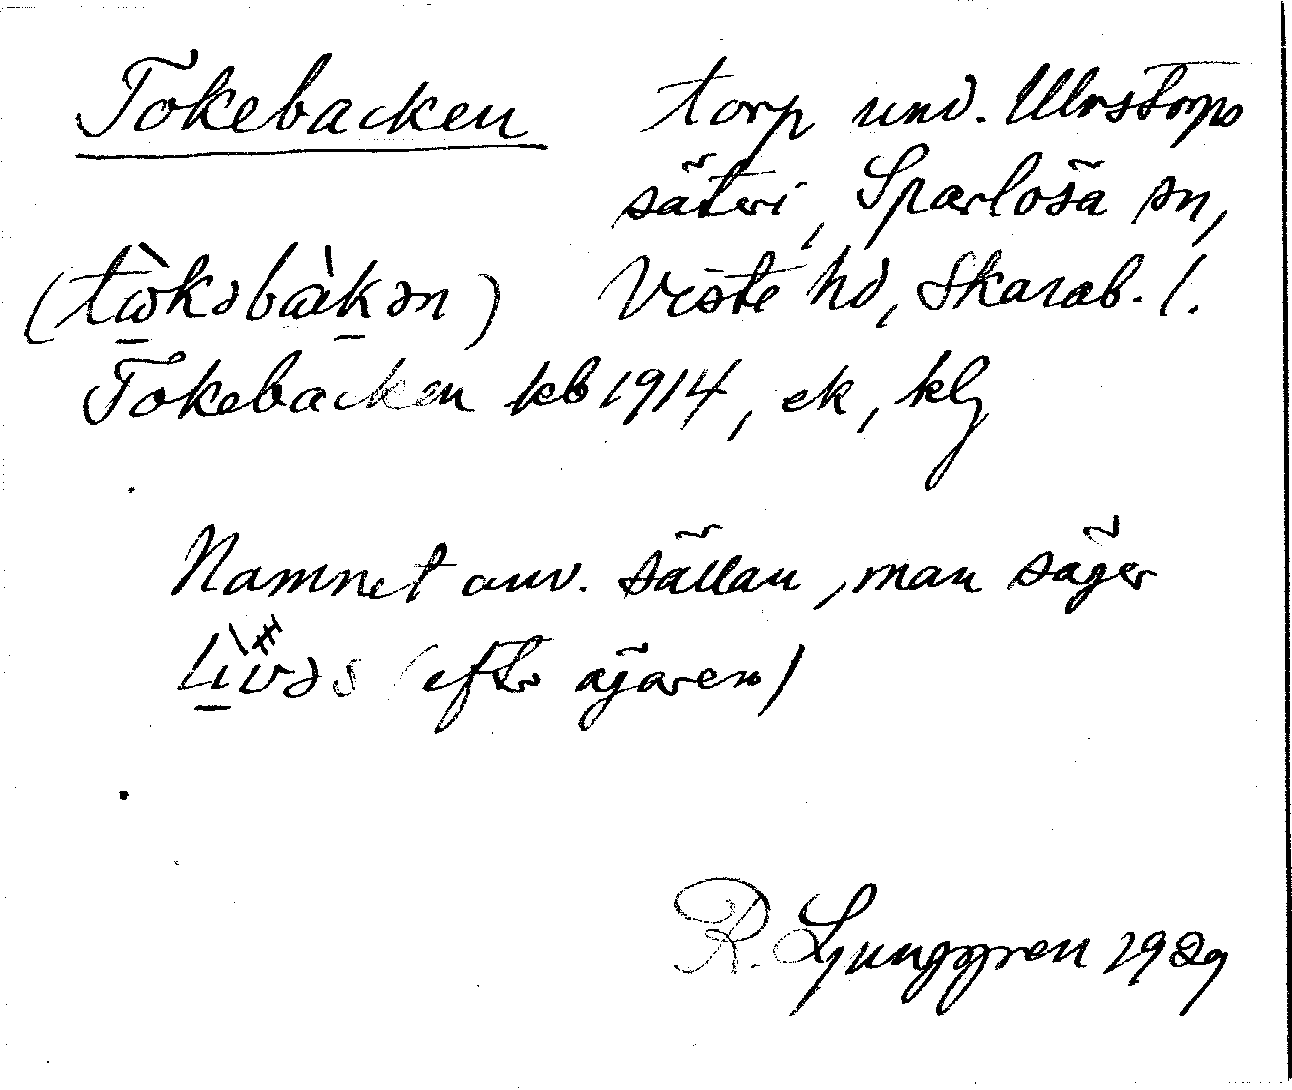 Tokebacken torp und. Ulvstorps
säteri, Sparlösa sn,
(tὼkəbàkən) Viste hd, Skarab. l.
Tokebacken kb 1914, ek, klj
Namnet anv. sällan, man säger
(efter ägaren)
R. Ljunggren 1929